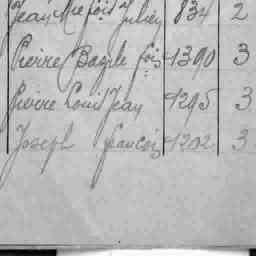 Jean Mie fois Julien 834 2
Pierre Bazile fois 1390 3
Pierre Louis Jean 1295 3
Joseph francois 1202 3